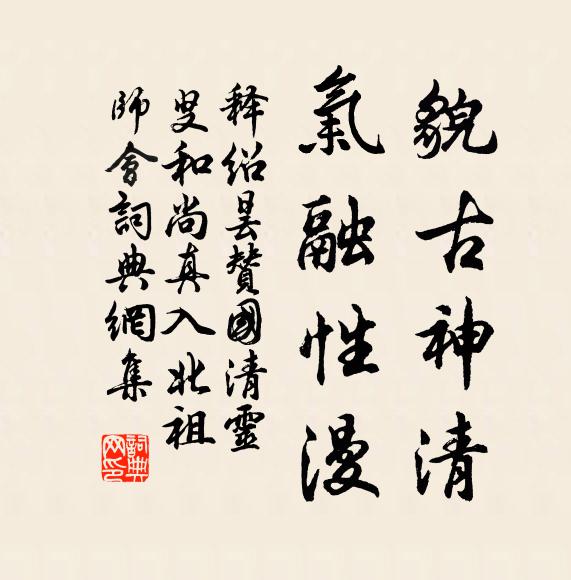 貌古神清
氣融性漫
释绍昙贊國清靈
叟和尚真入北祖
師會詞典網集
詞典网印